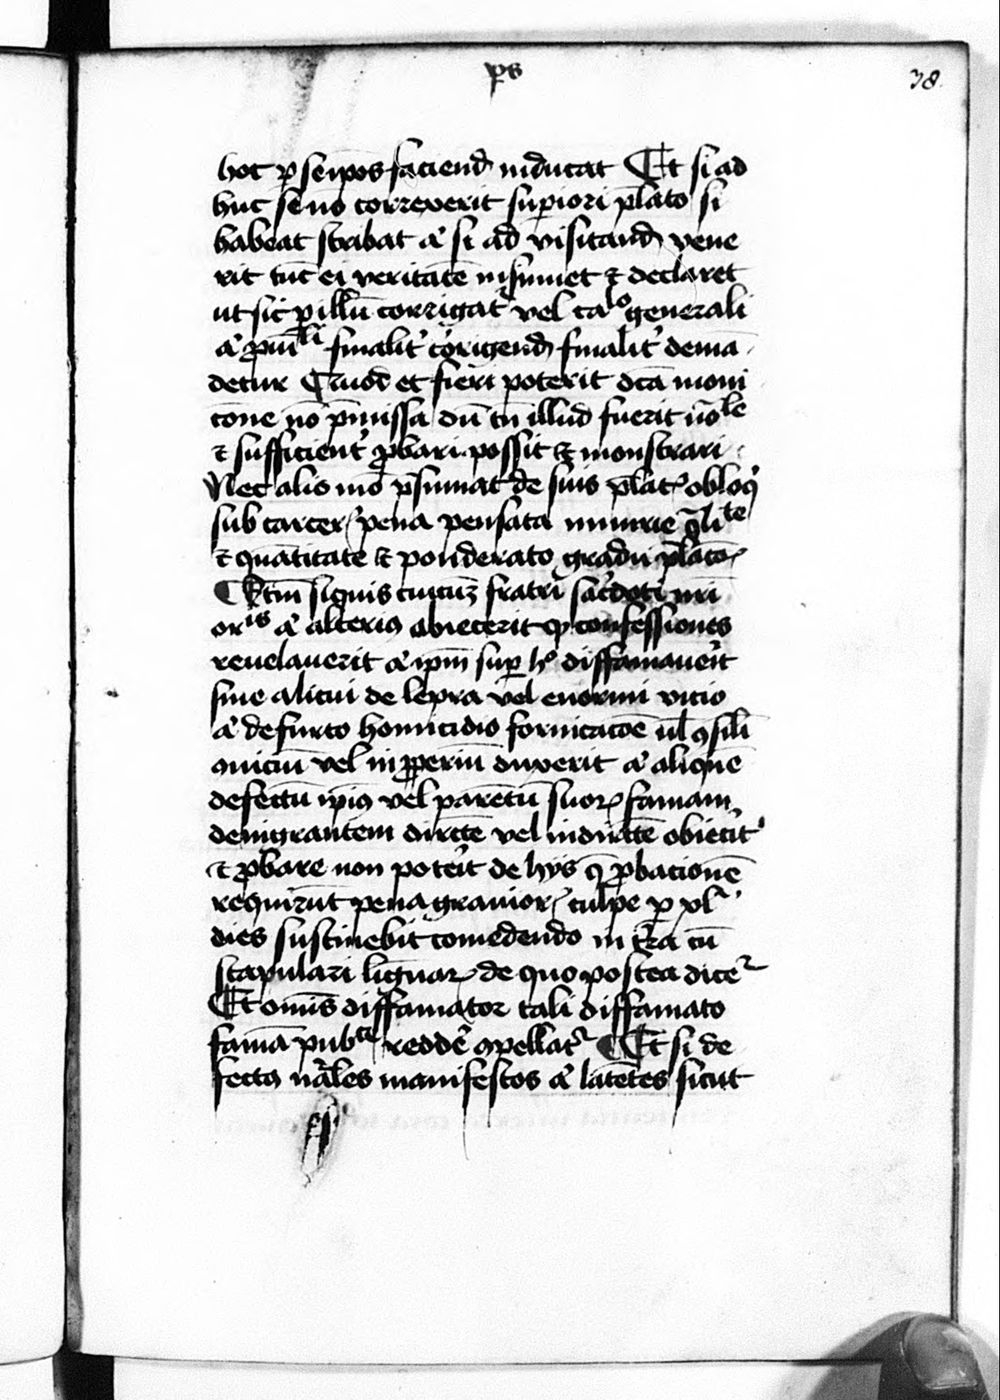 ps
38.
hoc p seipos faciend inducat Et si ad
huc se nō correxerit supiori plato si
habeat scribat a' si ad visitand vene
rit tūc ei veritatē insinuet ⁊ declaret
ut sic p illū corrigat' vel caᵒ generali
a' finalit' corrigend finalit' demā
detur Quod et fieri poterit dcā moni
cōne nō pmissa dū tn illud fuerit
⁊ sufficient' pbari possit & monstrari
Nec alio mō psumat de suis plat obloq
sub carcer pena pensata iniurie qlitᵗᵉ
⁊ quātitate & ponderato gradu plator
Itm siquis cuicuꝫ fratri sacdoti
orⁱˢ a' alteriꝰ obiecerit ꝙ confessiones
reuelauerit a' ipm sup hᵒ diffamauerit
siue alicui de lepra vel enormi vicio
a' de furto homicidio fornicacōe ul ꝯsili
vel duxerit a' aliquē
defectū ipiꝰ vel parētū suoꝝ famam
denigrantem dircte vel indircte obiecit
⁊ pbare non potit de hijs q pbacionē
requirūt pena grauior culpe p xl
dies sustinebit comedendo in tra cū
scapulari linguaꝝ de quo postea dice
Et omis diffamator tali diffamato
famā pubᶜᵉ redde ꝯpellat Et si de
fectꝰ nāles manifestos a' latētes sicut
ps